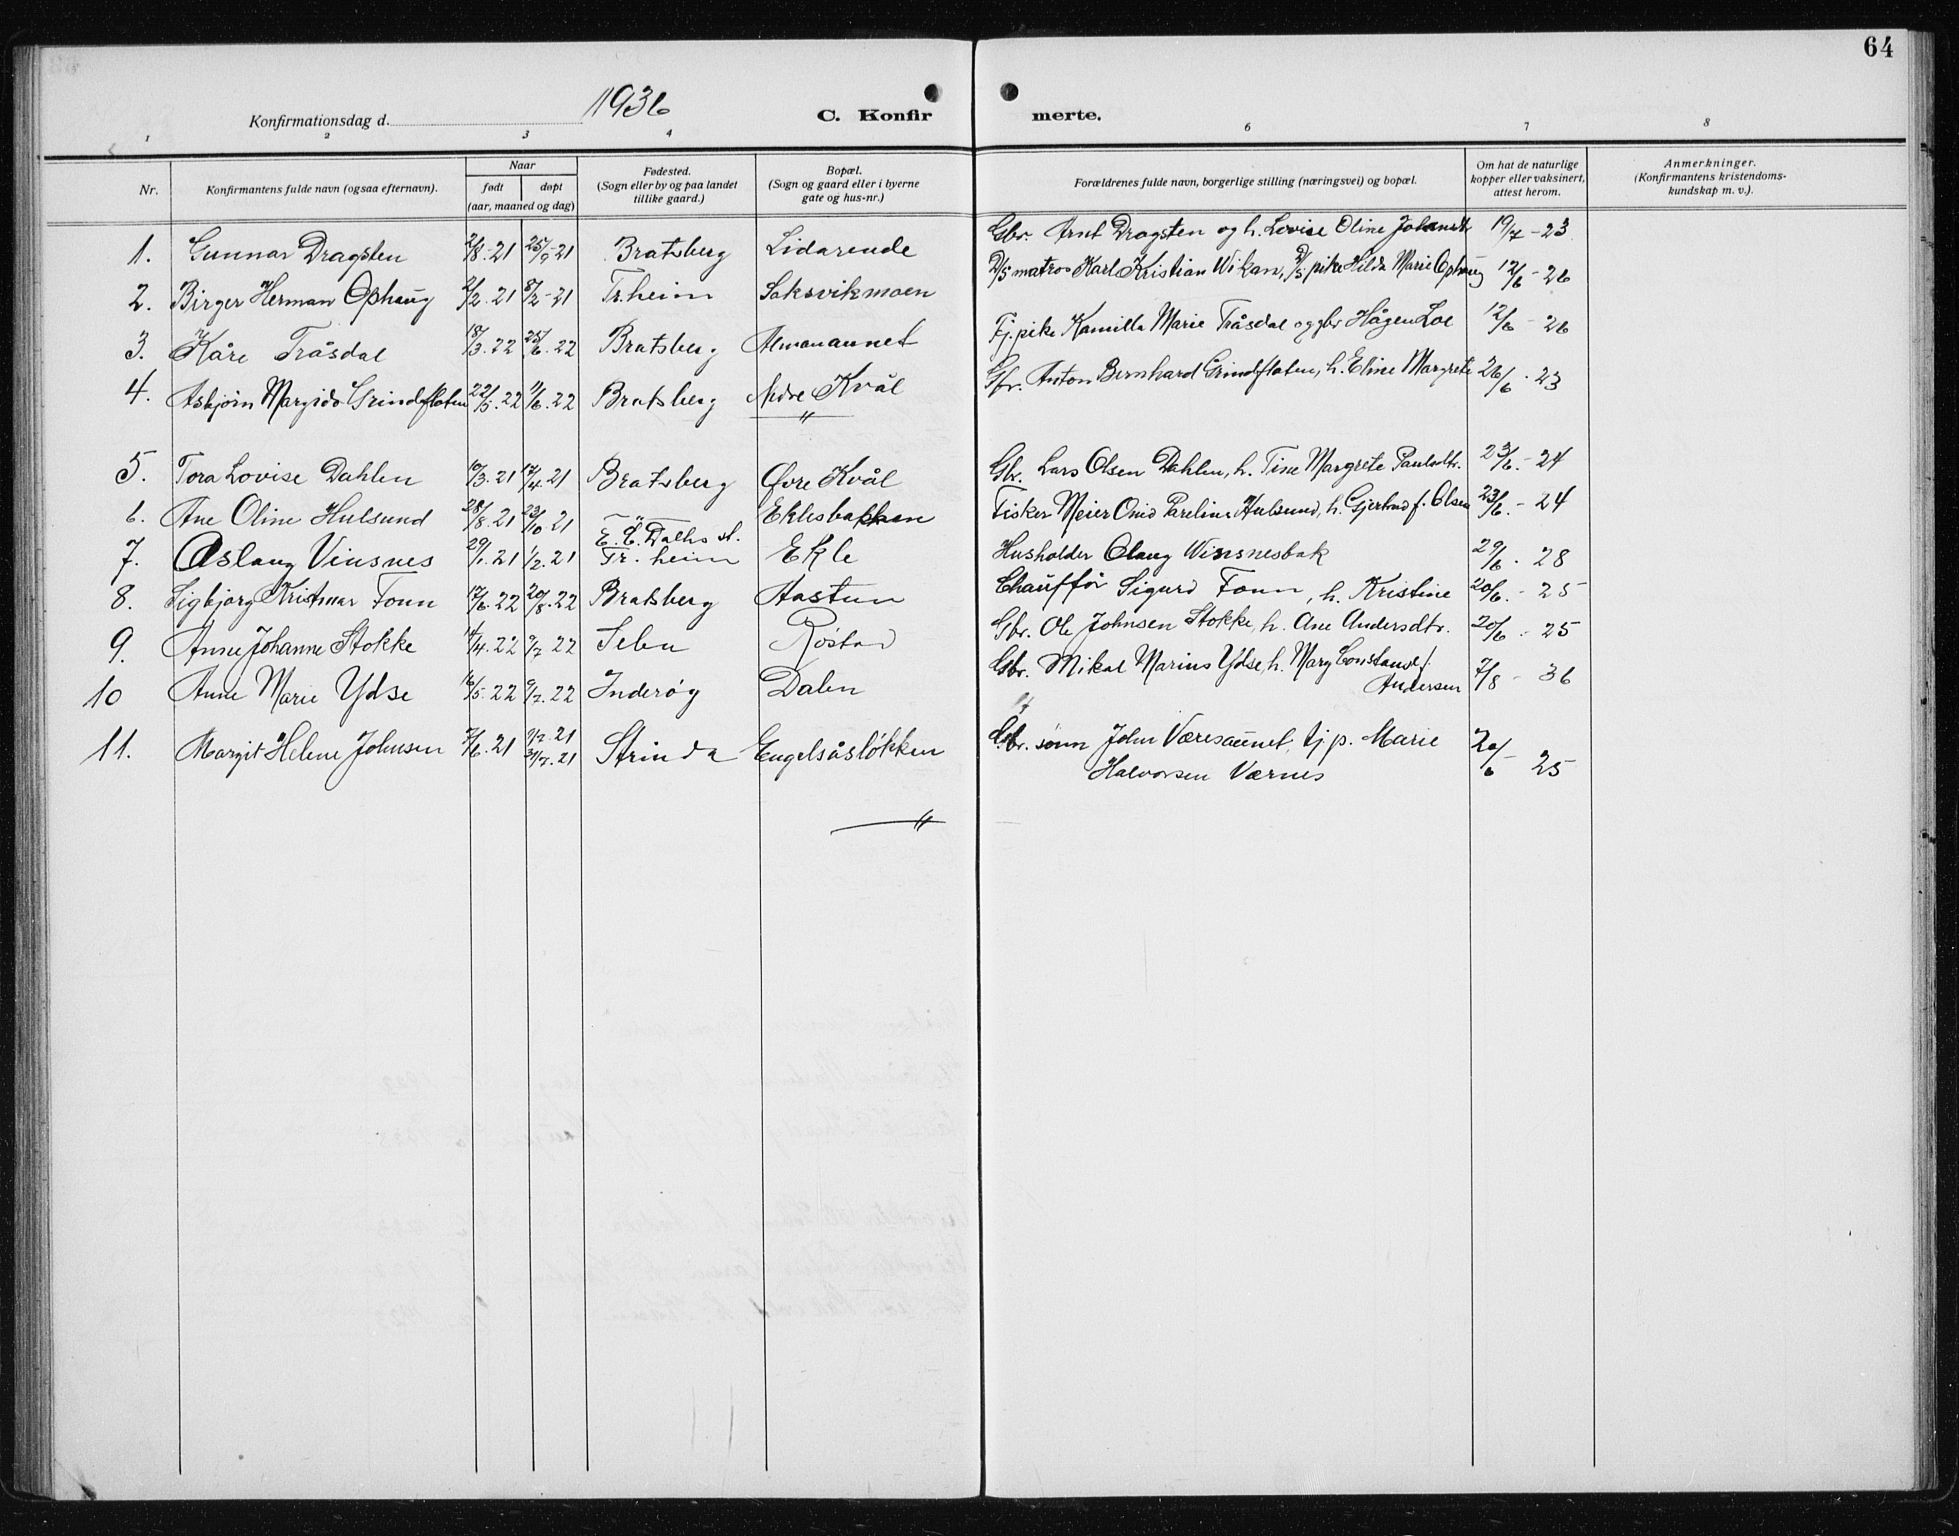 64
Konfirmationsdag d. 1936 C. Konfir merte.
1 2 3 4 6 7 8
Nr. Konfirmantens fulde navn (ogsaa efternavn). Naar født døpt (aar, maaned og dag) Fødested. (Sogn eller by og paa landet tillike gaard.) Bopæl. (Sogn og gaard eller i byerne gate og hus-nr.) Forældrenes fulde navn, borgerlige stilling (næringsvei) og bopæl. Om hat de naturlige kopper eller vaksinert, attest herom. Anmerkninger. (Konfirmantens kristendoms-kundskap m. v.).
1. Gunnar Dragsten 2/8-21 25/9-21 Bratsberg Lidarende Gbr. Arnt Dragsten og h. Lovise Oline 19/7-23
2. Birger Herman Ophaug 2/2.21 8/2-21 Tr.heim Saksvikmoen D/S matros Karl Kristian Wikan, D/S pike Hilda Marie Ophaug 12/6-26
3. Kåre Tråsdal 18/3.22 25/6.22 Bratsberg Almanaunet Tj.pike Kamilla Marie Tråsdal og gbr Hågen Loe 12/6-26
4. Asbjørn Grindfloten 22/5.22 11/6.22 Bratsberg Nedre Kvål Gbr. Anton Bernhard Grindfloten, h. Eline Margrete 26/6.23
"
5. Tora Lovise Dahlen 10/3.21 17/4.21 Bratsberg Øvre Kvål Gbr. Lars Olsen Dahlen, h. Tine Margrete Paulsdtr. 23/6.-24
6. Ane Oline Hulsund 28/8.21 23/10.21 E. C. Dalhs st. Eklesbakken Fisker Meier Hulsund, h. Gjertrud f. Olsen 23/6.-24
7. Aslaug Vinsnes 29/1.21 1/2.21 Tr.heim Ekle Husholder Olaug Winsnesbak 29/6.28
8. Sigbjørg Fonn 17/6.22 20/8.22 Bratsberg Aastun Chauffør Sigurd Fonn, h. Kristine 20/6.-25
9. Anne Johanne Stokke 14/4.22 9/7 22 Selbu Røstad Gbr. Ole Johnsen Stokke, h. Ane Andersdtr. 20/6.-25
10 Anne Marie Ydse 16/5.22 9/7.22 Inderøy Dalen Gbr. Mikal Marius Ydse, h. Mary Constanse f. 7/8-36
Andersen
11. Margit Helene Johnsen 7/6.21 9/7.21 31/7.21 Strinda Engelsåsløkken Gbr. sønn John Væresaunet, tj p. Marie 20/6-25
Halvorsen Værnes
"